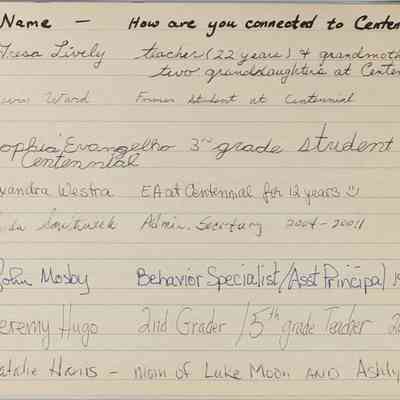 Name - How are you connected to Centen
resa Lively teacher (22 years) & grandmoth
two granddaughters at Centen
Ward Former student at Centennial
ophia Evangelho 3rd grade student
Centennial
xandra Westra EA at Centennial for 12 years ☺
Admin. Secretary 2004 - 20011
John Mosby Behavior Specialist/Asst Principal 19
eremy Hugo 2nd Grader / 5th grade Teacher 20
atalie Harris - mom of Luke Moon AND Ashly